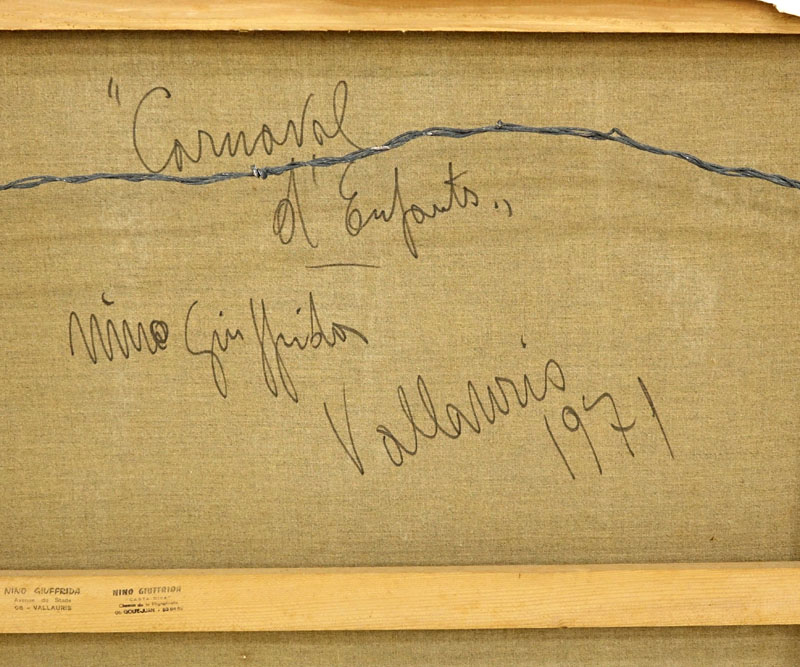 "Carnaval
d'Enfants.,,
Nino Giuffrida
Vallauris
1971
NINO GIUFFRIDA
Avenue du Stade
06 - VALLAURIS
NINO GIUFFRIDA
Chemin de la
06 GOLFE-JUAN